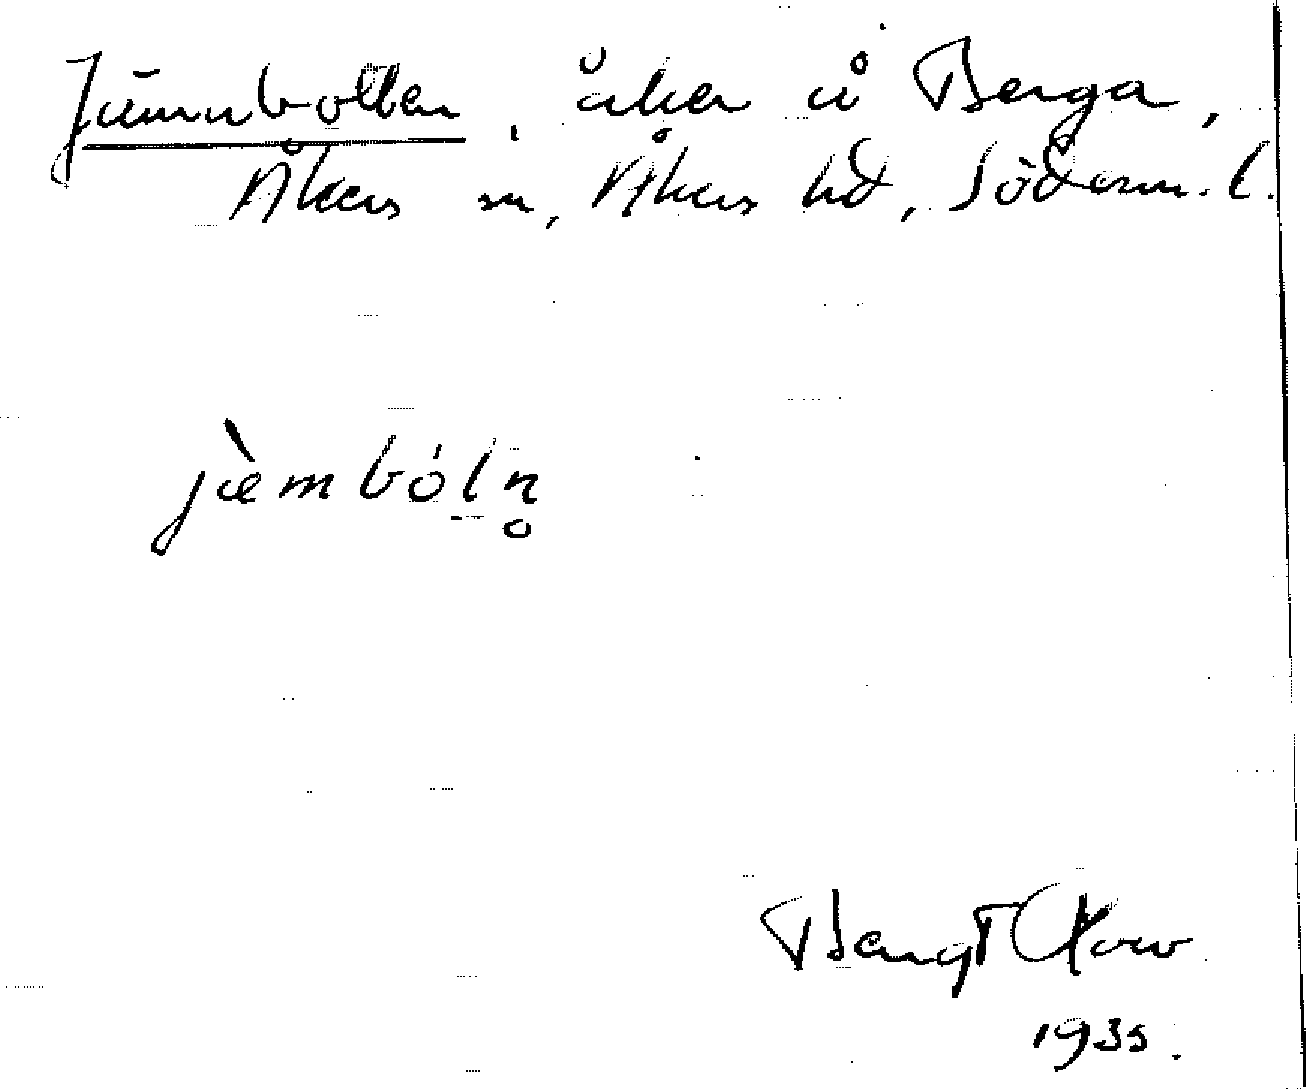 Jämnbollen, åker å Berga,
Åkers sn, Åkers hd, Söderm. l.
jæ̀mbóln̥
Bengt
1935.